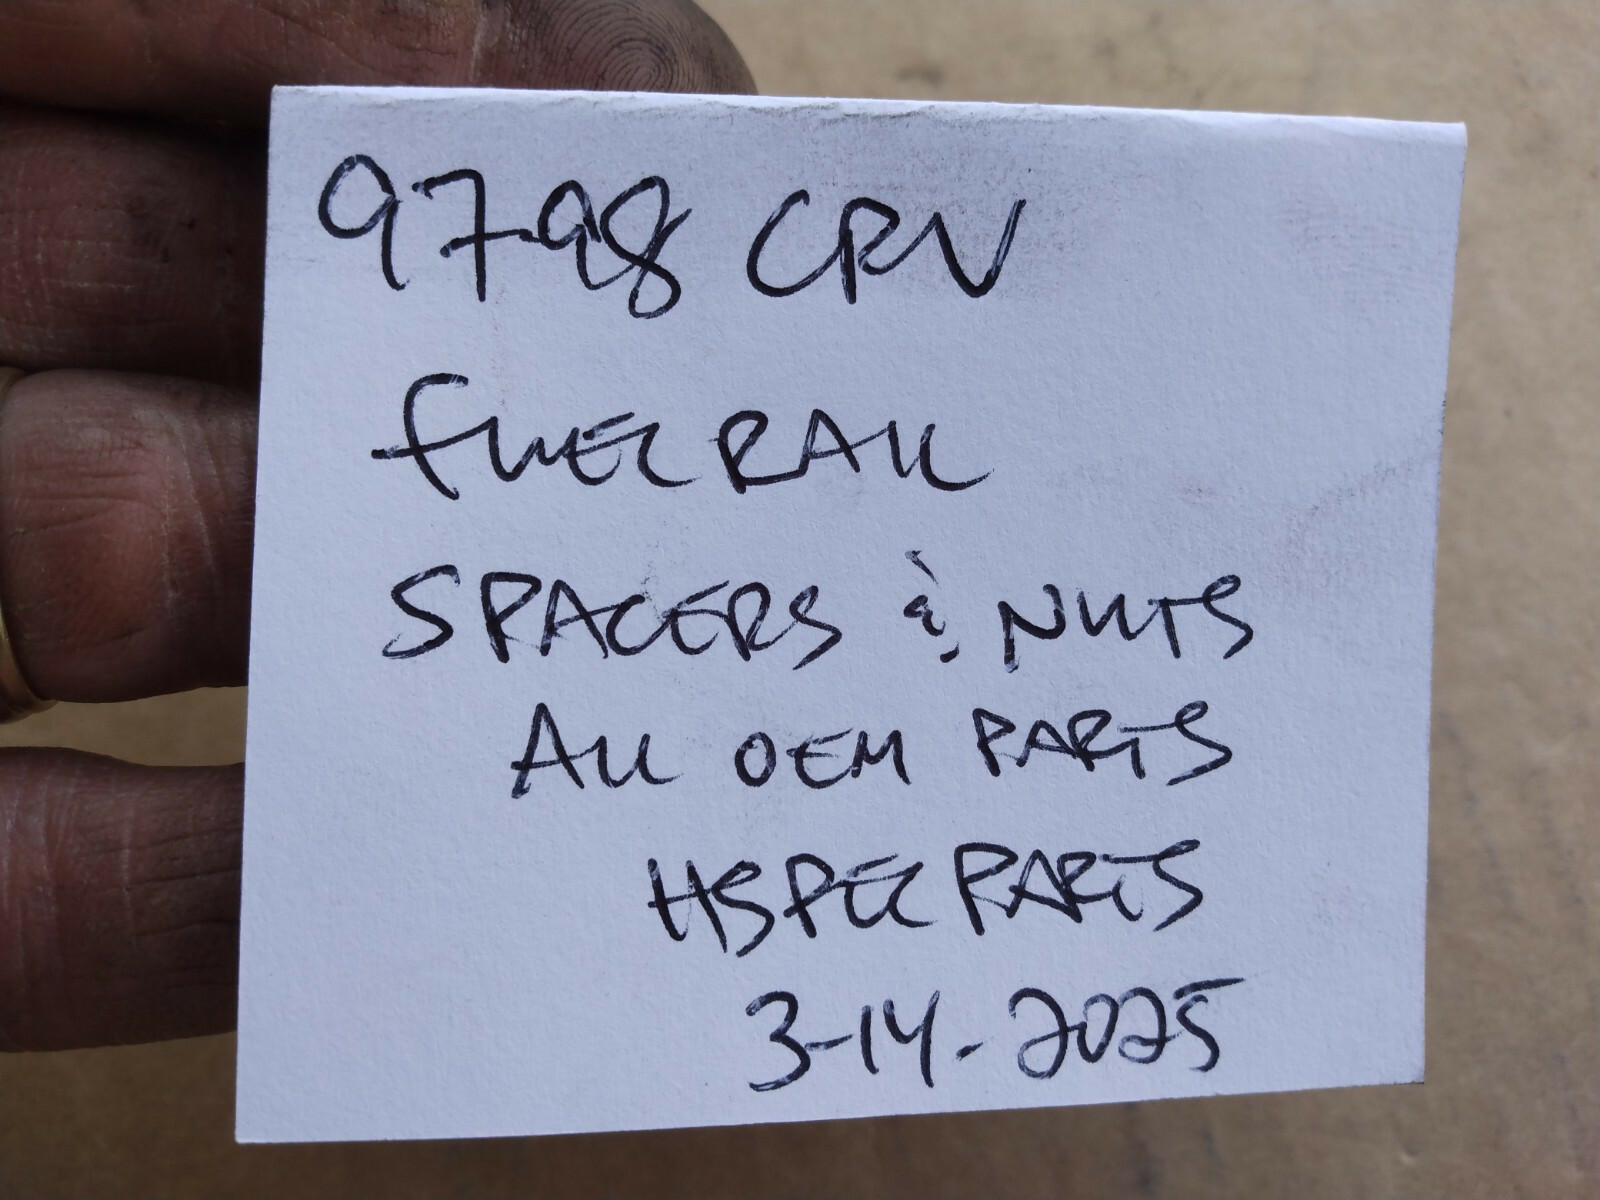 97-98 CRV
FUEL RAIL
SPACERS & NUTS
ALL OEM PARTS
HSPEC PARTS
3-14-2025